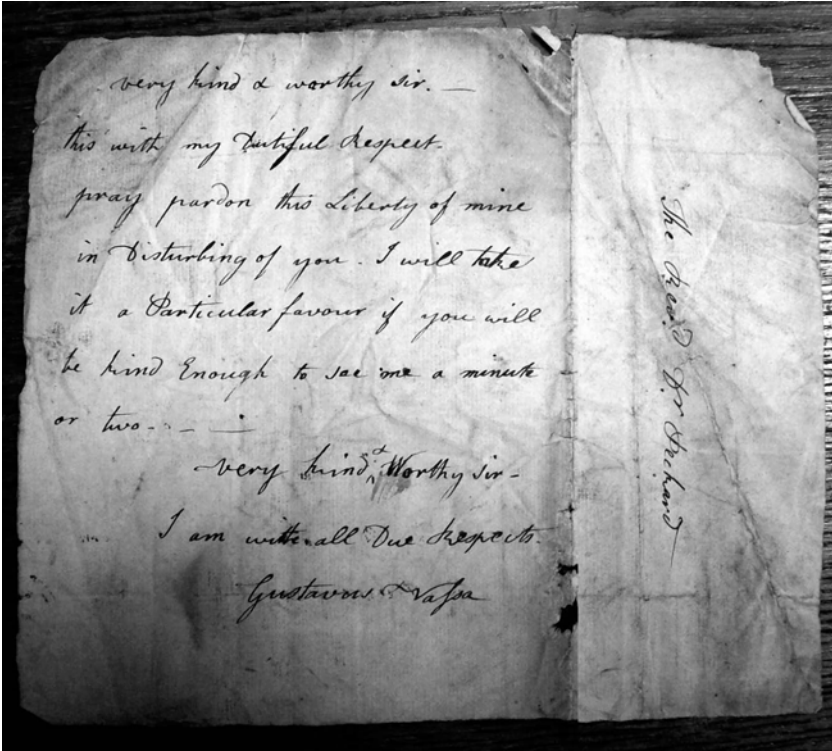 very kind & worthy sir. —
this with my Dutiful Respect.
pray pardon this Liberty of mine
in Disturbing of you. I will take
it a Particular favour if you will
be kind Enough to see me a minute
or two - - - —
very kind & Worthy sir -
I am with all Due Respects.
Gustavus Vassa
The Revd. Dr